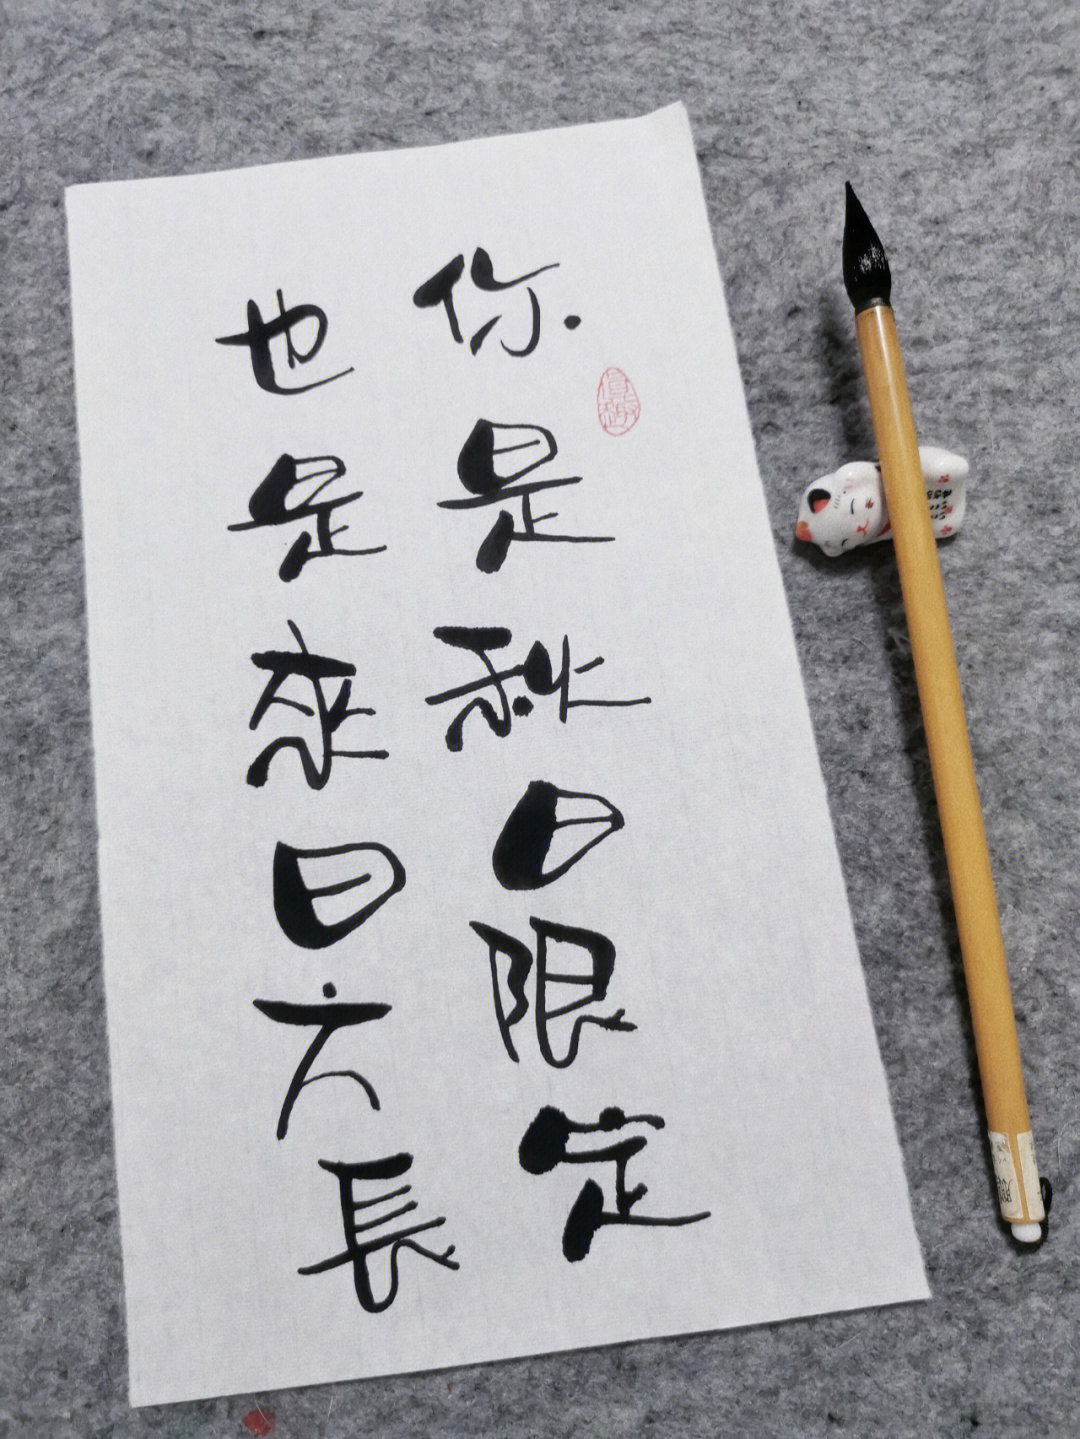 你是秋日限定
也是来日方長